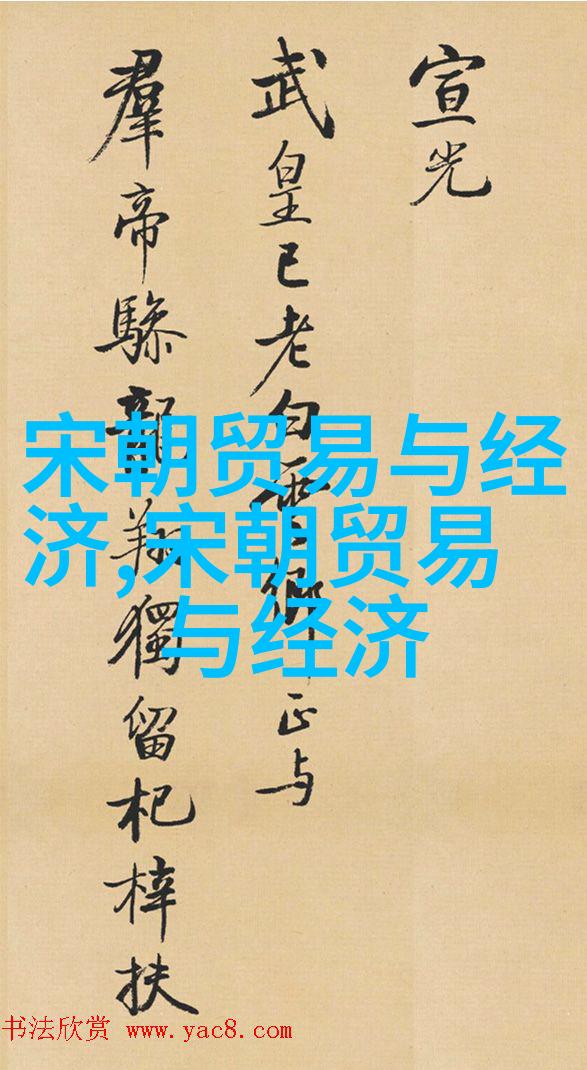 宣光
武皇已老白雲鄉正与
羣帝驂龍翔獨留杞梓扶
宋朝贸易与经
济,宋朝贸易
与经济
书法欣赏 www.yac8.com